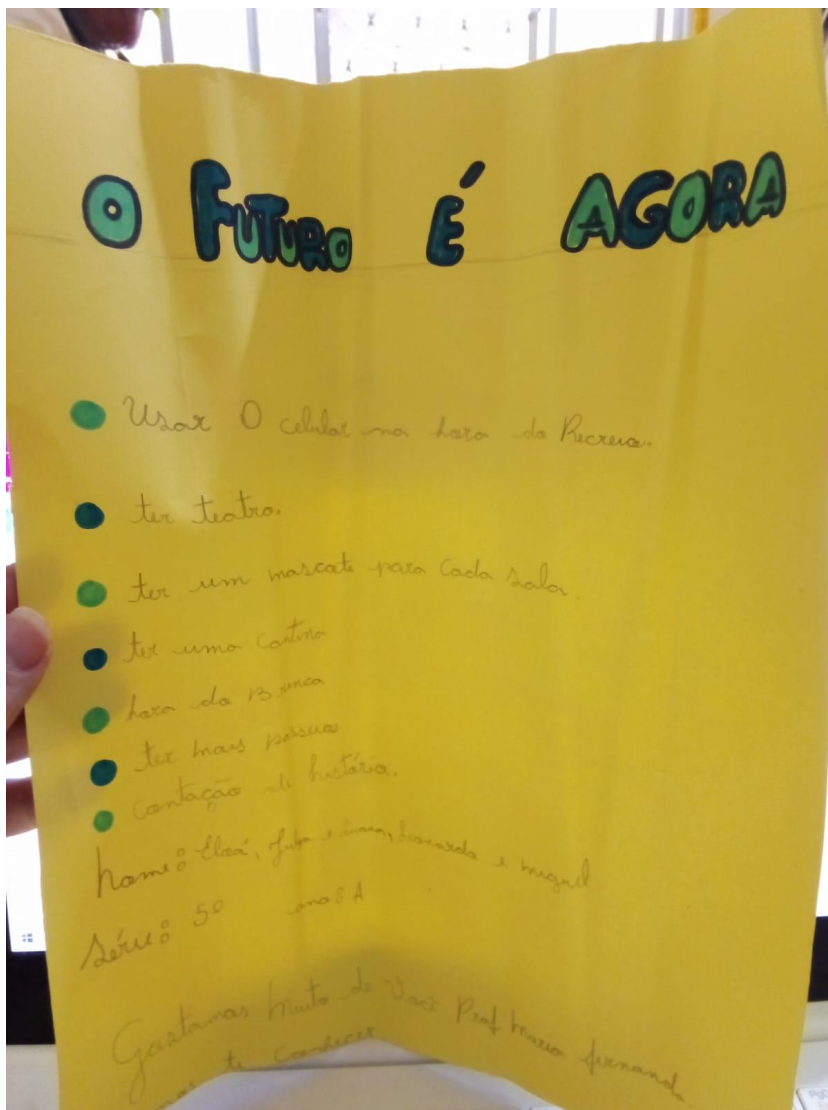 O FUTURO É AGORA
Usar O celular na hora do Recreio.
ter teatro.
ter um mascote para Cada sala.
ter uma cantina
hora da Brinca
ter mais passeios
contação de história.
nome: Eloá, e luana, leonardo e miguel
série: 5º ano: A
Gostamos muito de Você Prof Maria fernanda.
te conhecer